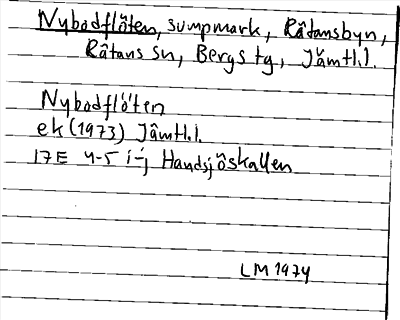 Nybodflöten, sumpmark, Råtansbyn,
Råtans sn, Bergs tg., Jämtl.l.
Nybodflöten
ek (1973) Jämtl.l.
17E 4-5 i-j Handsjöskallen
LM 1974